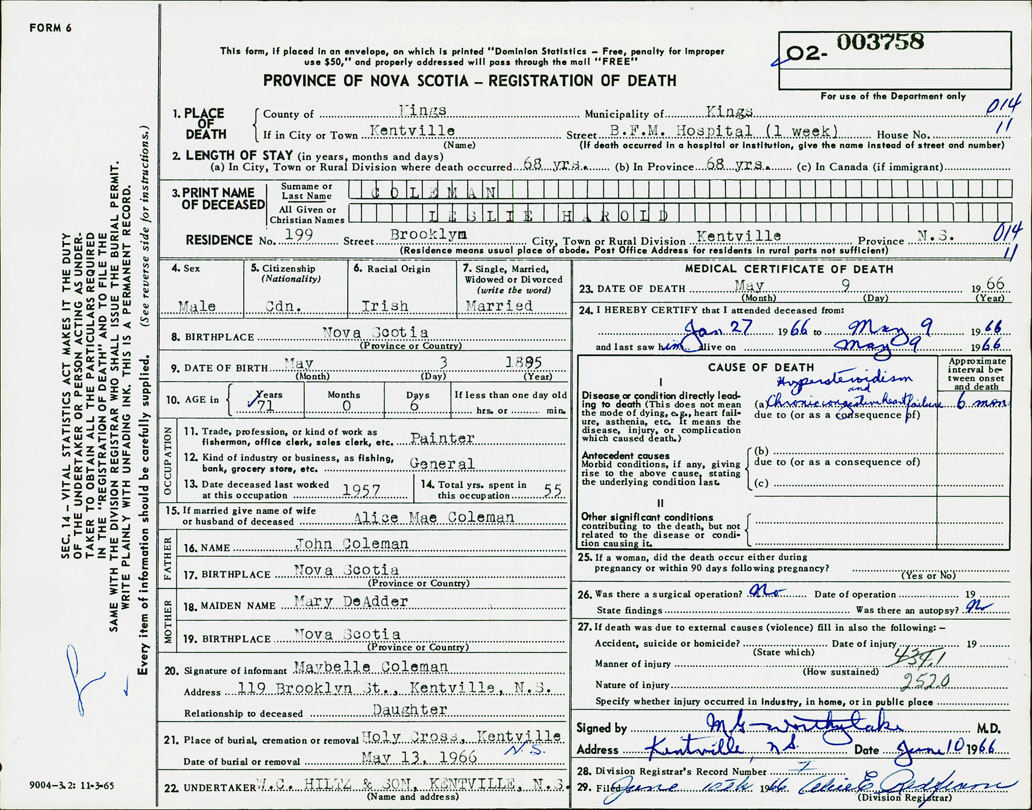 FORM 6
This form, if placed in an envelope, on which is printed "Dominion Statistics – Free, penalty for improper
use $50," and properly addressed will pass through the mail "FREE"
PROVINCE OF NOVA SCOTIA – REGISTRATION OF DEATH
02- 003758
For use of the Department only
014
11
1. PLACE OF DEATH
County of Kings Municipality of Kings
If in City or Town Kentville Street B.F.M. Hospital (1 week) House No.
(Name) (If death occurred in a hospital or institution, give the name instead of street and number)
2. LENGTH OF STAY (in years, months and days)
(a) In City, Town or Rural Division where death occurred 68 yrs. (b) In Province 68 yrs. (c) In Canada (if immigrant)
3. PRINT NAME OF DECEASED
Surname or Last Name COLEMAN
All Given or Christian Names LESLIE HAROLD
RESIDENCE No. 199 Street Brooklyn City, Town or Rural Division Kentville Province N.S.
(Residence means usual place of abode. Post Office Address for residents in rural parts not sufficient)
014
11
SEC. 14 – VITAL STATISTICS ACT MAKES IT THE DUTY
OF THE UNDERTAKER OR PERSON ACTING AS UNDER-
TAKER TO OBTAIN ALL THE PARTICULARS REQUIRED
IN THE "REGISTRATION OF DEATH" AND TO FILE THE
SAME WITH THE DIVISION REGISTRAR WHO SHALL ISSUE THE BURIAL PERMIT.
WRITE PLAINLY WITH UNFADING INK. THIS IS A PERMANENT RECORD.
Every item of information should be carefully supplied. (See reverse side for instructions.)
4. Sex
Male
5. Citizenship
(Nationality)
Cdn.
6. Racial Origin
Irish
7. Single, Married,
Widowed or Divorced
(write the word)
Married
8. BIRTHPLACE Nova Scotia
(Province or Country)
9. DATE OF BIRTH May 3 1895
(Month) (Day) (Year)
10. AGE in
Years Months Days If less than one day old
71 0 6 hrs. or min.
OCCUPATION
11. Trade, profession, or kind of work as
fisherman, office clerk, sales clerk, etc. Painter
12. Kind of industry or business, as fishing,
bank, grocery store, etc. General
13. Date deceased last worked
at this occupation 1957
14. Total yrs. spent in
this occupation 55
15. If married give name of wife
or husband of deceased Alice Mae Coleman
FATHER
16. NAME John Coleman
17. BIRTHPLACE Nova Scotia
(Province or Country)
MOTHER
18. MAIDEN NAME Mary DeAdder
19. BIRTHPLACE Nova Scotia
(Province or Country)
20. Signature of informant Maybelle Coleman
Address 119 Brooklyn St., Kentville, N.S.
Relationship to deceased Daughter
21. Place of burial, cremation or removal Holy Cross, Kentville
N.S.
Date of burial or removal May 13, 1966
22. UNDERTAKER W.C. HILTZ & SON, KENTVILLE, N.S.
(Name and address)
9004–3.2: 11-3-65
MEDICAL CERTIFICATE OF DEATH
23. DATE OF DEATH May 9 1966
(Month) (Day) (Year)
24. I HEREBY CERTIFY that I attended deceased from:
Jan. 27 1966 to May 9 1966
and last saw him alive on May 9 1966
CAUSE OF DEATH
Approximate
interval be-
tween onset
and death
I
Disease or condition directly lead-
ing to death (This does not mean
the mode of dying, e.g., heart fail-
ure, asthenia, etc. It means the
disease, injury, or complication
which caused death.)
and
(a) Chronic congestive heart failure 6 mon
due to (or as a consequence of)
Antecedent causes
Morbid conditions, if any, giving
rise to the above cause, stating
the underlying condition last.
(b)
due to (or as a consequence of)
(c)
II
Other significant conditions
contributing to the death, but not
related to the disease or condi-
tion causing it.
25. If a woman, did the death occur either during
pregnancy or within 90 days following pregnancy?
(Yes or No)
26. Was there a surgical operation? No Date of operation 19
State findings Was there an autopsy? No
27. If death was due to external causes (violence) fill in also the following: –
Accident, suicide or homicide? Date of injury 19
(State which)
Manner of injury 4341
(How sustained)
Nature of injury 2520
Specify whether injury occurred in industry, in home, or in public place
Signed by M.D.
Address Kentville, N.S. Date June 10 1966
28. Division Registrar's Record Number
29. Filed June 10th 1966
(Division Registrar)